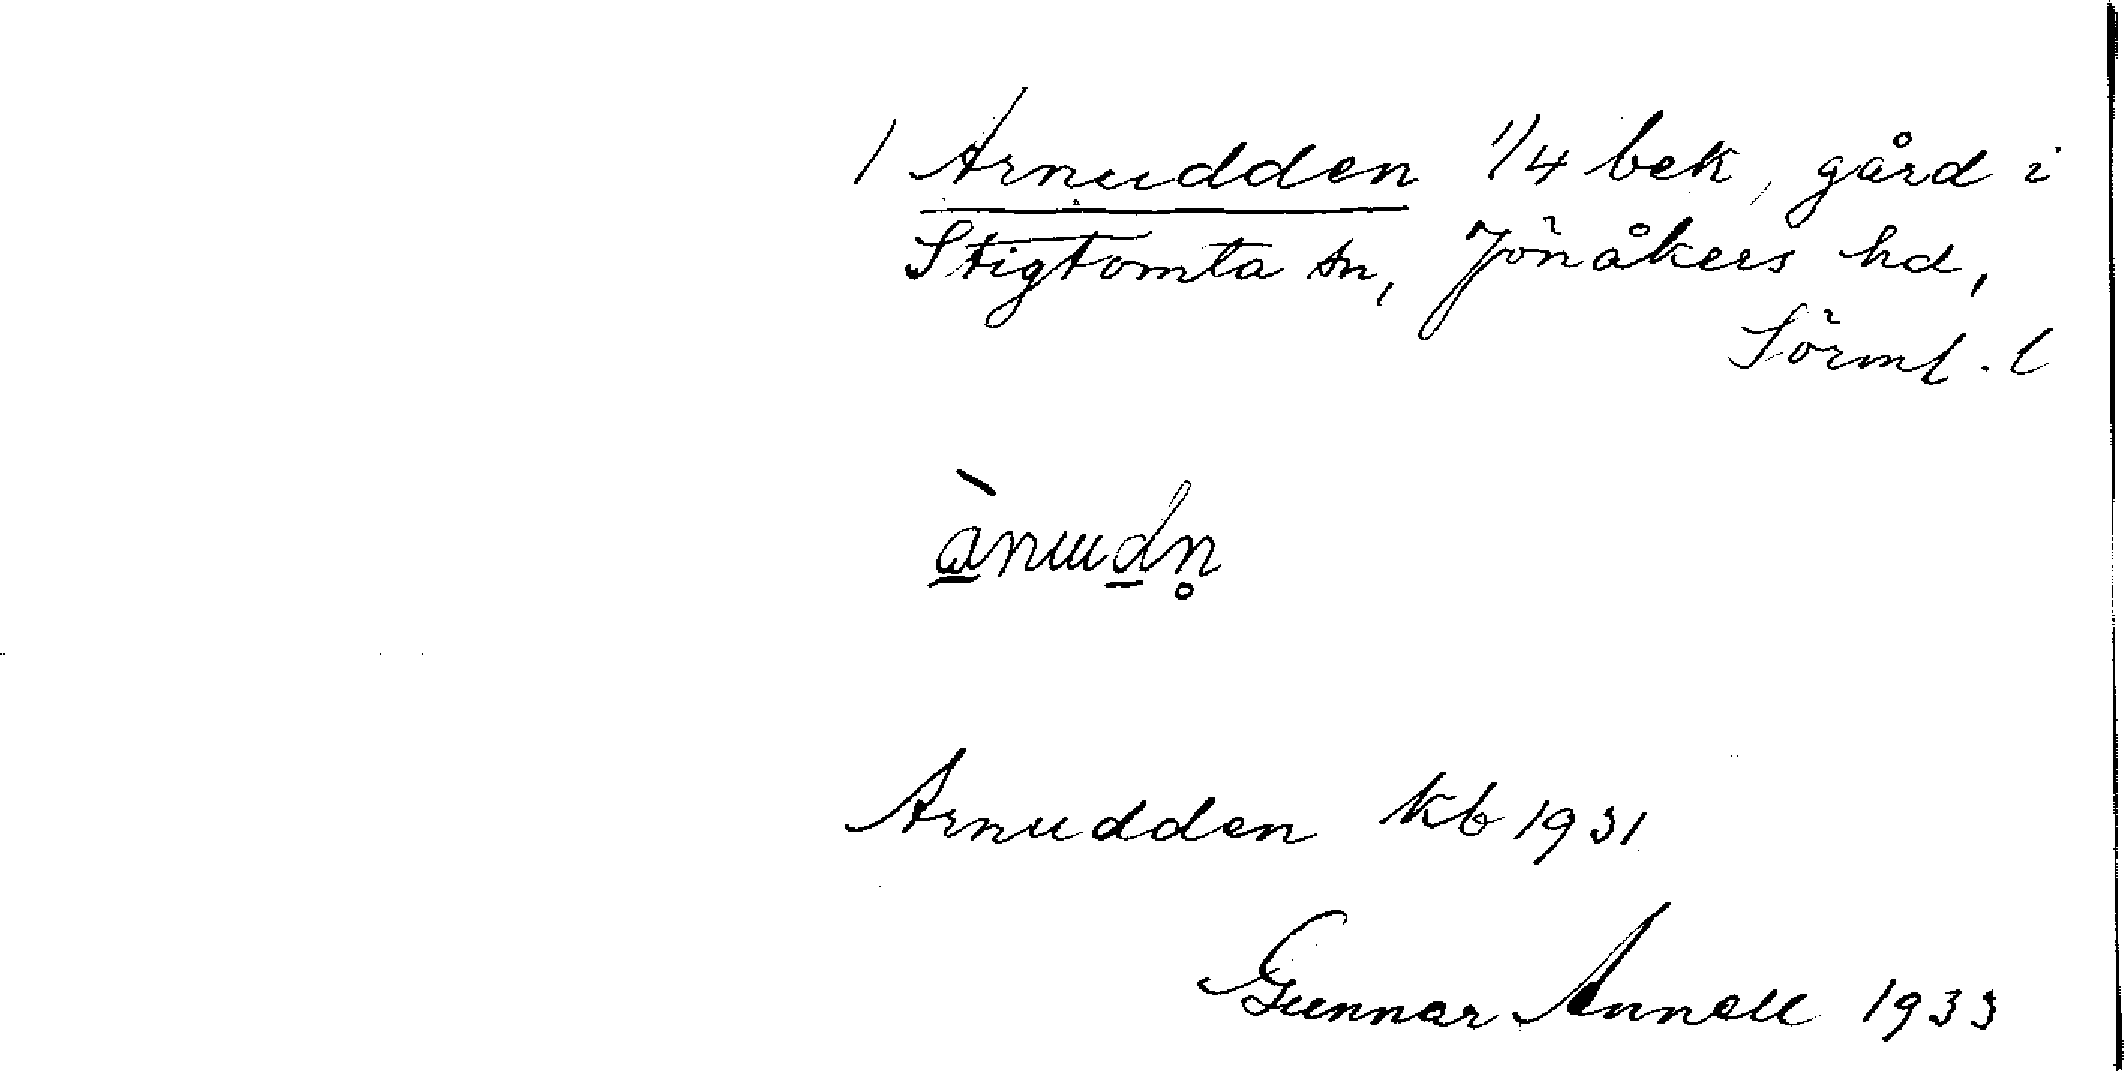 1 Arnudden 1/4 bek, gård i
Stigtomta sn, Jönåkers hd,
Sörml. l
Arnudden kb 1931
Gunnar Annell 1933